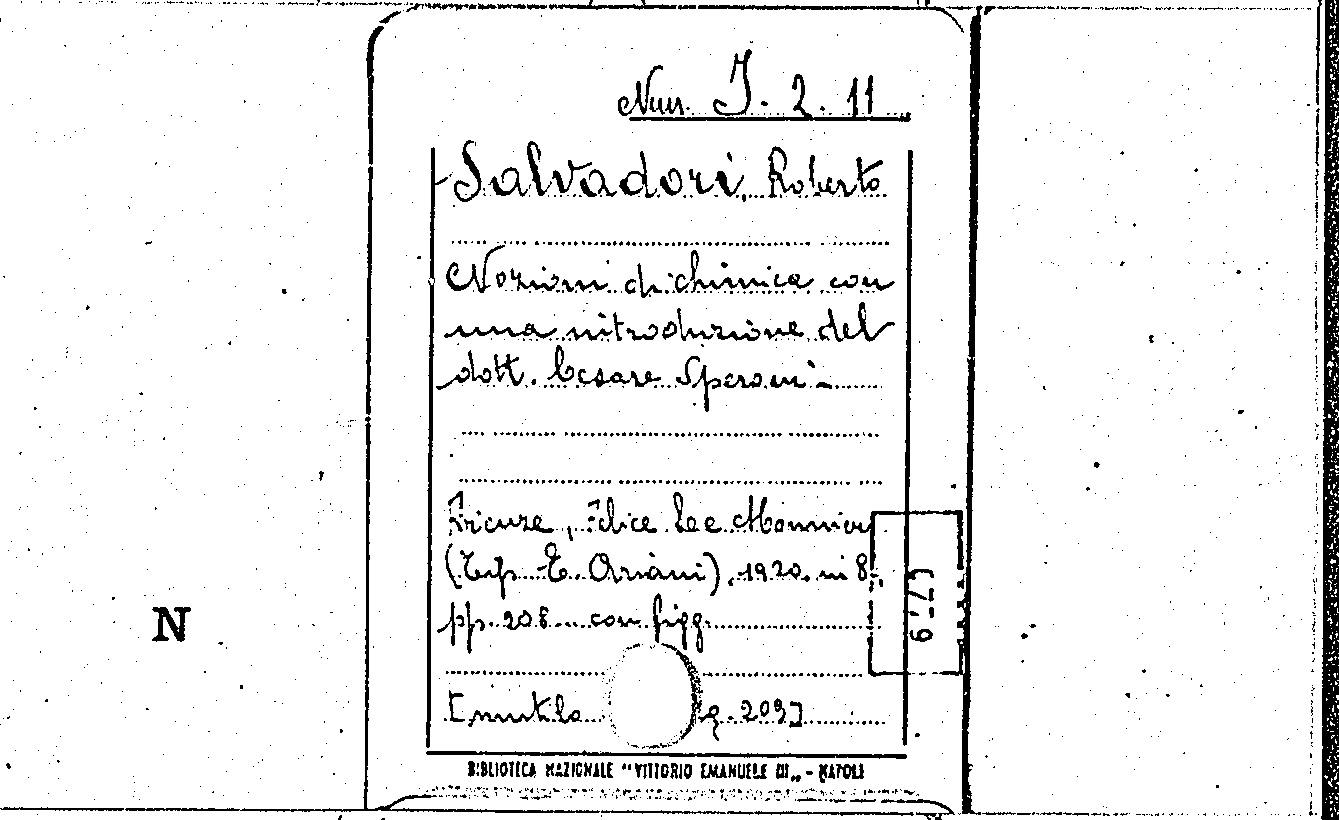 Nun. J. 2. 11
Salvadori, Roberto
Nozioni di chimica con
una introduzione del
dott. Cesare Speroni.
Firenze, Felice Le Monnier
(Tip. E. Ariani), 1920, in 8.,
pp. 208 con figg.
[mutilo g. 209]
677,9
N
BIBLIOTECA NAZIONALE "VITTORIO EMANUELE III„ - NAPOLI